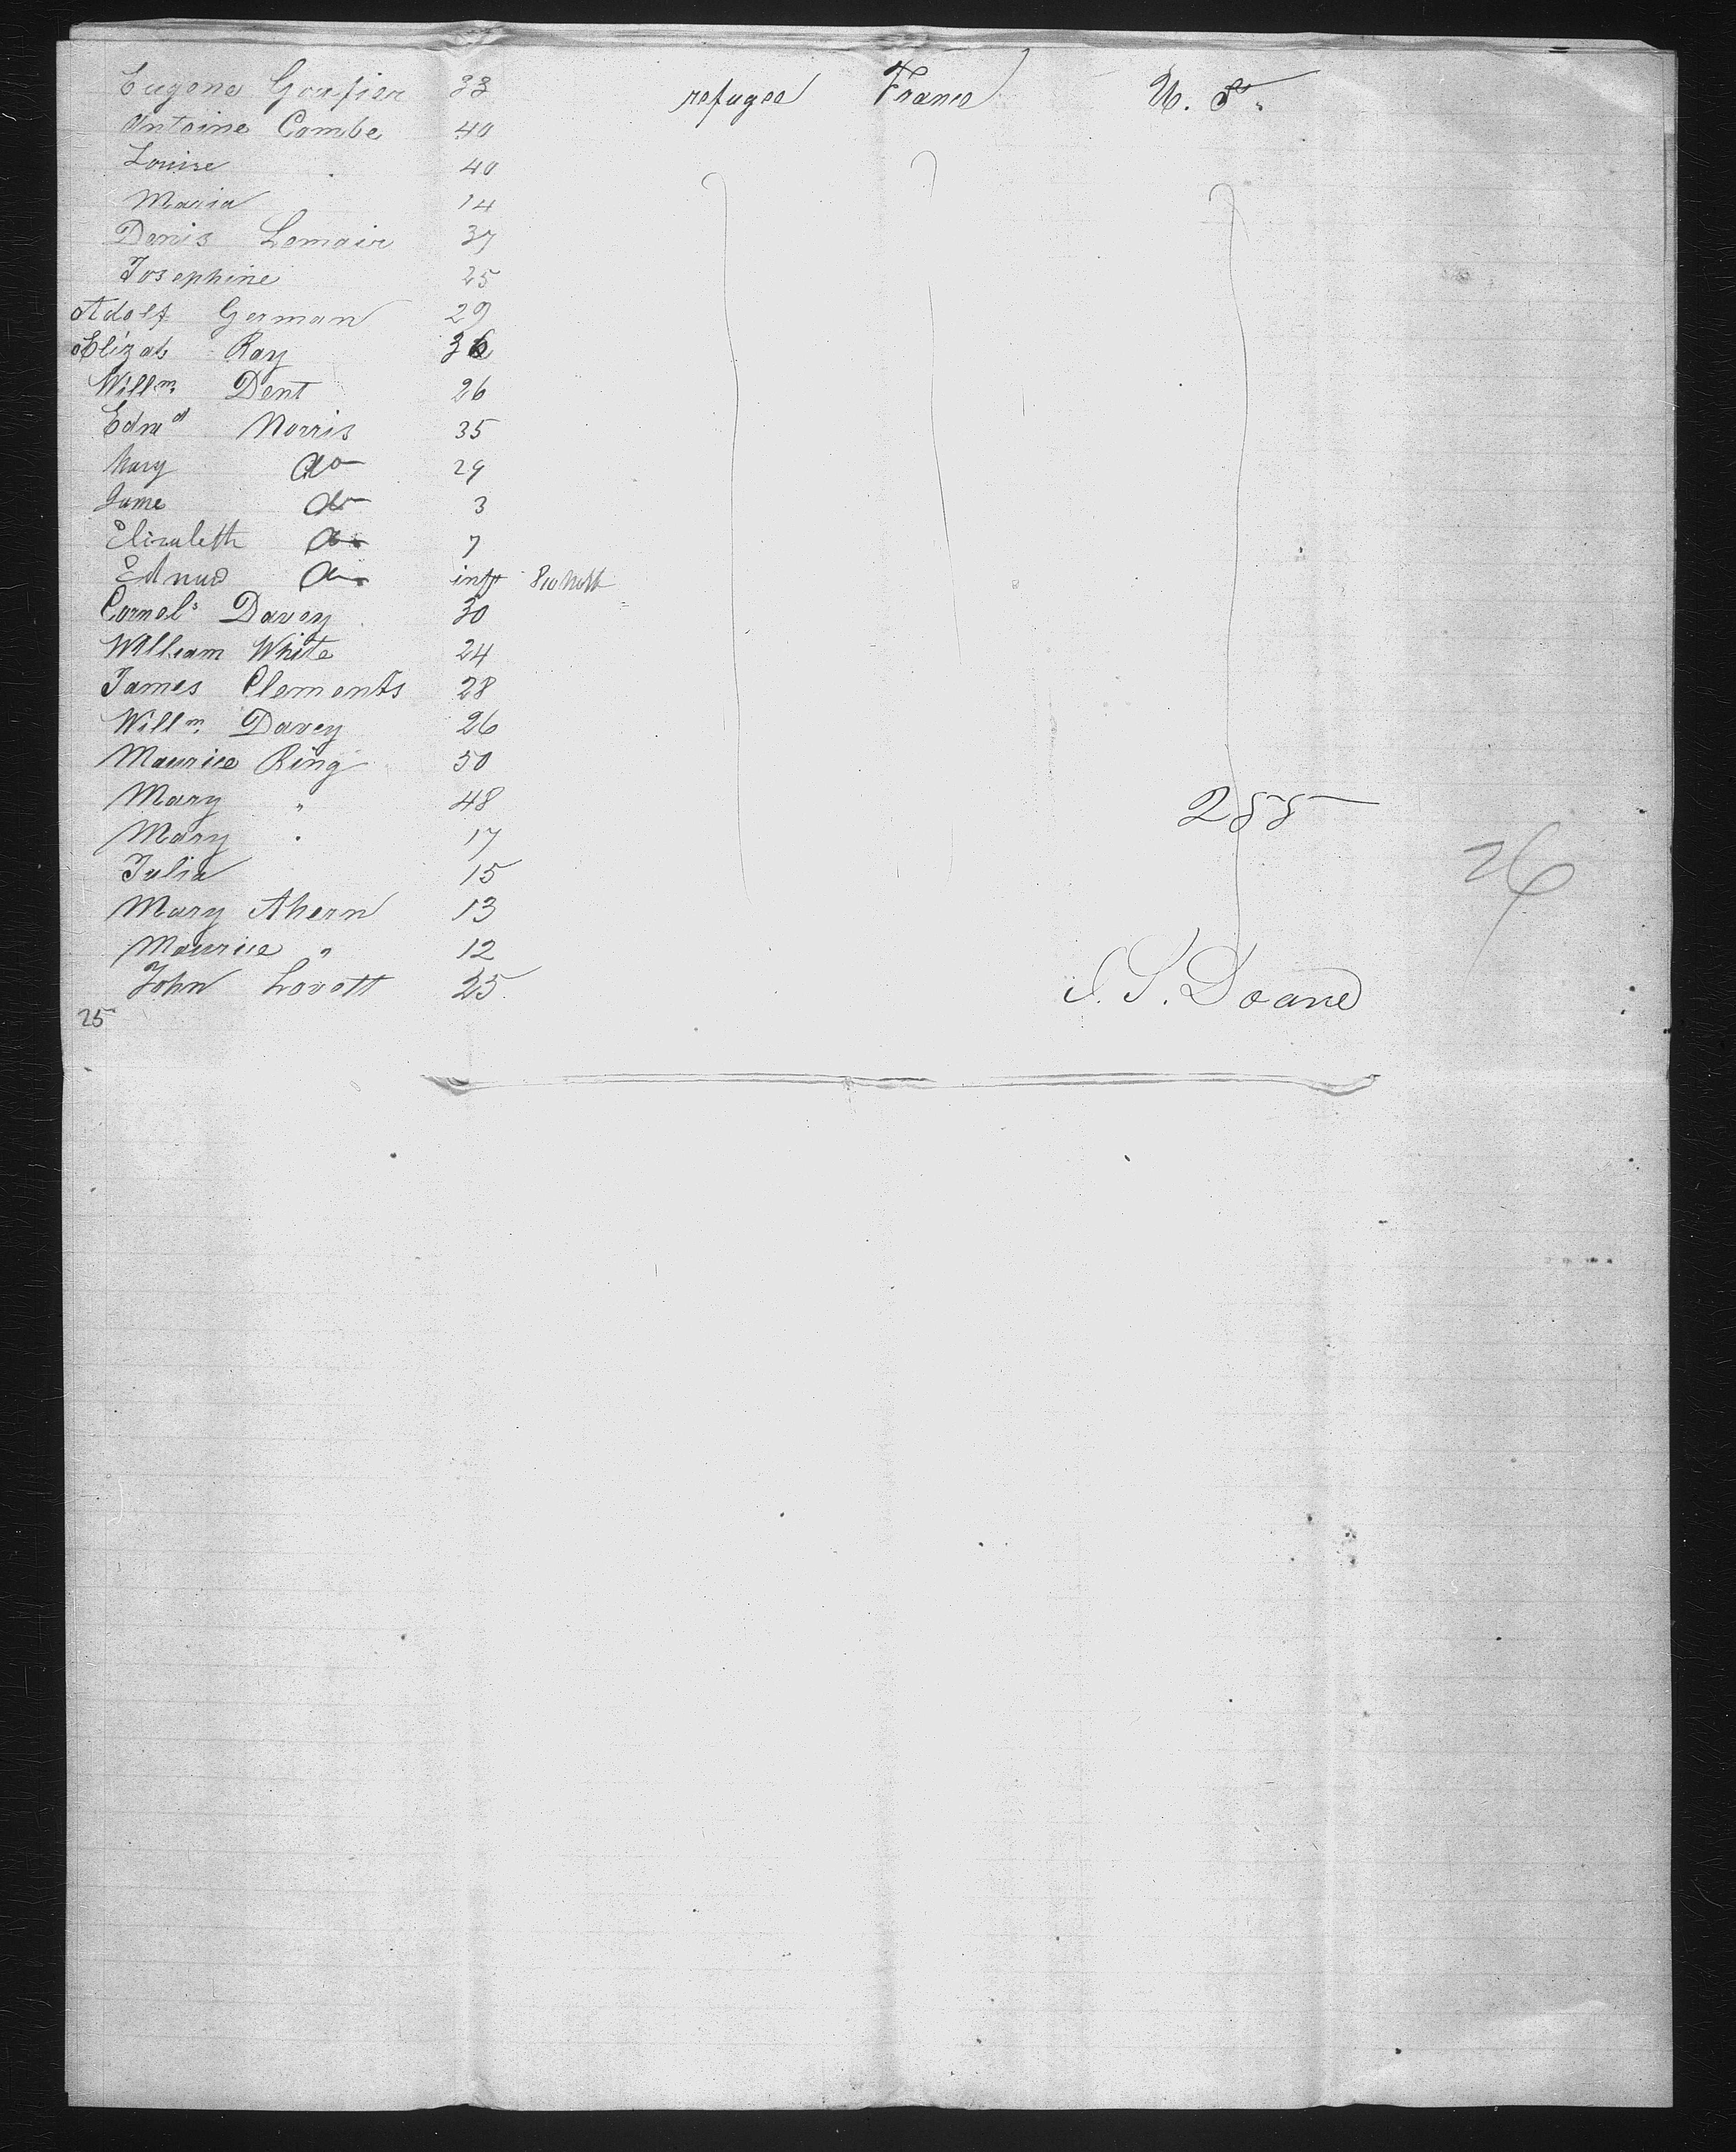 Eugene Goafier 33 refugee France U. S.
Antoine Combe 40
Louise 40
Maria 14
Denis Lemair 37
Josephine 25
Adolf German 29
Elizab Ray 36
Willm. Dent 26
Edmd Norris 35
Mary do 29
Jame do 3
Elizabeth do 7
Edmud do inft 8
Cornels Davey 30
William White 24
James Clements 28
Willm. Davey 26
Maurice Ring 50
Mary " 48 255
Mary " 17 26
Julia 15
Mary Ahern 13
Maurice " 12
John Lovett 25 J. S. Doane
25